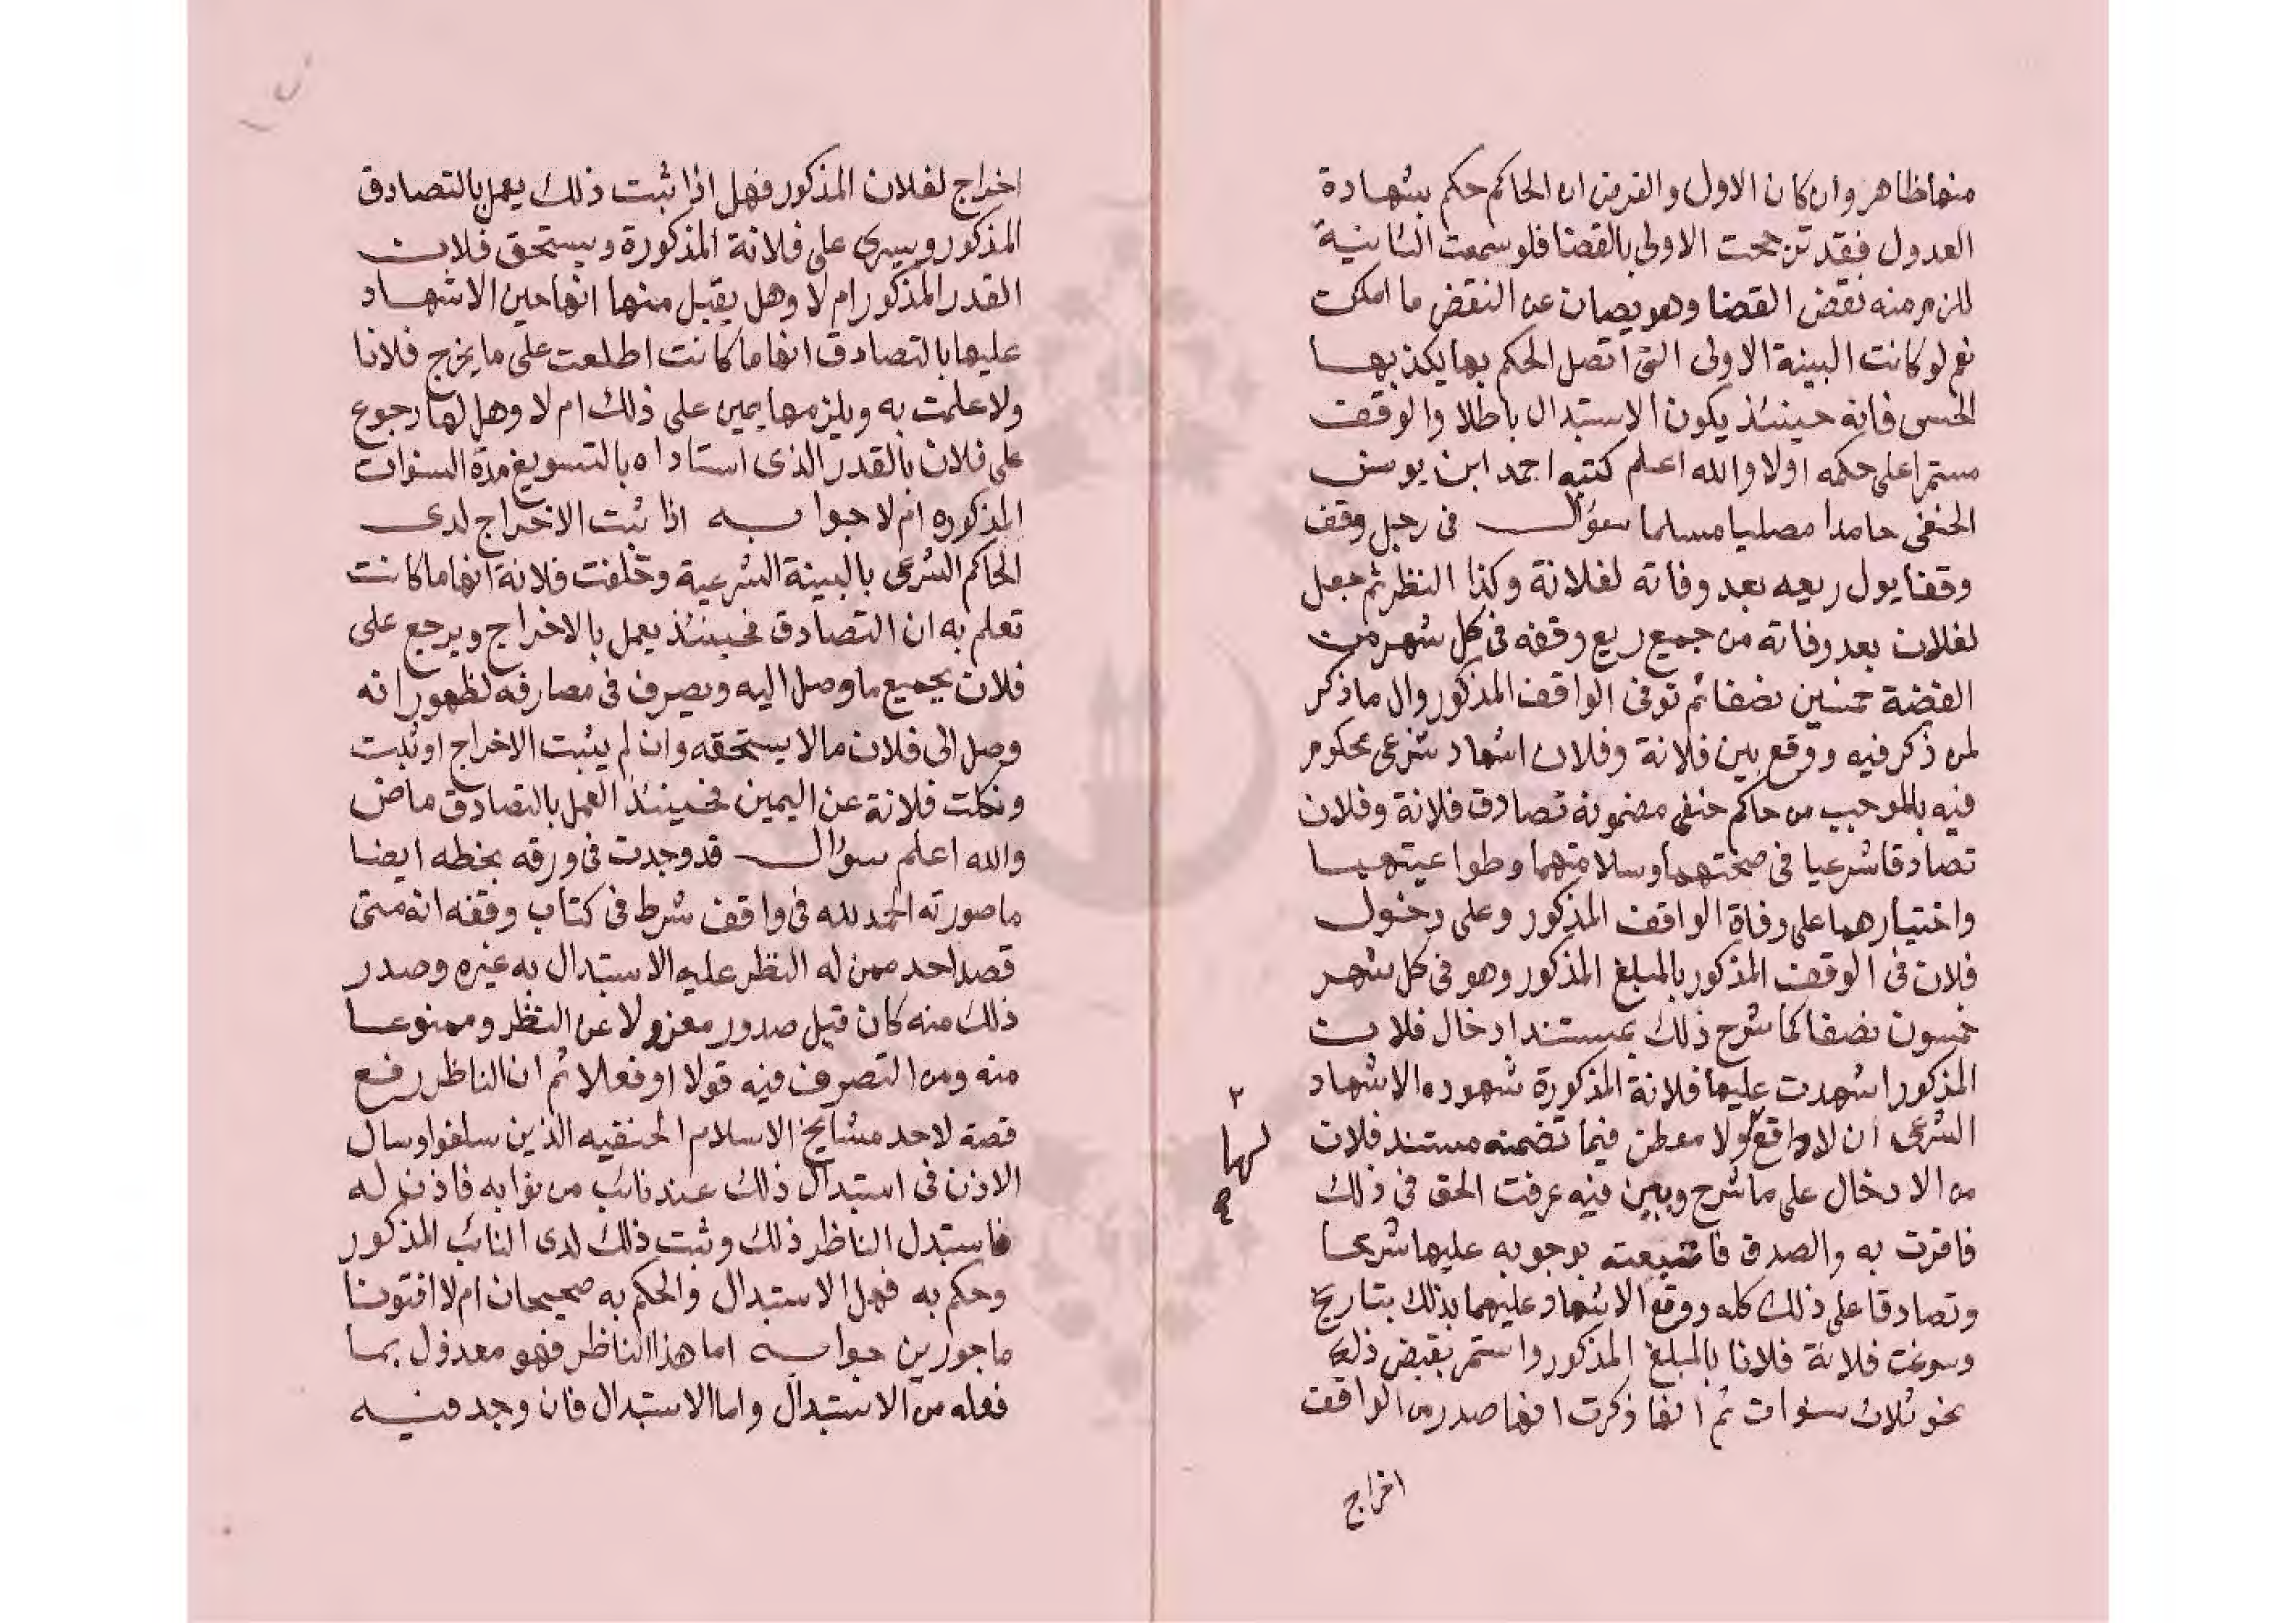 منها ظاهر وان كان الاول والفرض ان الحاكم حكم بشهادة
العدول فقد ترجحت الاولى بالقضا فلو سمعت الثانية
للزم منه نقض القضا وهو يصان عن النقض ما امكن
نعم لو كانت البينة الاولى التى اتصل الحكم بها يكذبها
الحس فانه حينئذ يكون الاستبدال باطلا والوقف
مستمرا على حكمه اولا والله اعلم كتبه احمد ابن يونس
الحنفى حامدا مصليا مسلما سؤال فى رجل وقف
وقفا يول ريعه بعد وفاته لفلانة وكذا النظر ثم جعل
لفلان بعد وفاته من جميع ريع وقفه فى كل شهر من
الفضة خمسين نصفا ثم توفى الواقف المذكور وال ما ذكر
لمن ذكر فيه ووقع بين فلانة وفلان اشهاد شرعى محكوم
فيه بالموجب من حاكم حنفى مضمونه تصادق فلانة وفلان
تصادقا شرعيا فى صحتهما وسلامتهما وطواعيتهما
واختيارهما على وفاة الواقف المذكور وعلى دخول
فلان فى الوقف المذكور بالمبلغ المذكور وهو فى كل شهر
خمسون نصفا كما شرح ذلك بمستند ادخال فلان
المذكور اشهدت عليها فلانة المذكورة شهوده الاشهاد
الشرعى ان لا دافع ولا مطعن فيما تضمنه مستند فلان
لها
من الادخال على ما شرح وبين فيه عرفت الحق فى ذلك
فاقرت به والصدق فاتبعته بوجوبه عليها شرعا
وتصادقا على ذلك كله ووقع الاشهاد عليهما بذلك بتاريخ
وسوغت فلانة فلانا بالمبلغ المذكور واستمر يقبض ذلك
نحو ثلاث سنوات ثم انها ذكرت انها صدر من الواقف
اخراج
اخراج لفلان المذكور فهل اذا ثبت ذلك يعمل بالتصادق
المذكور ويسرى على فلانة المذكورة ويستحق فلان
القدر المذكور ام لا وهل يقبل منها انها حين الاشهاد
عليها بالتصادق انها ما كانت اطلعت على ما يخرج فلانا
ولا علمت به ويلزمها يمين على ذلك ام لا وهل لها رجوع
على فلان بالقدر الذى استاداه بالتسويغ مدة السنوات
المذكوره ام لا جوابه اذا ثبت الاخراج لدى
الحاكم الشرعى بالبينة الشرعية وحلفت فلانة انها ما كانت
تعلم به ان التصادق فحينئذ يعمل بالاخراج ويرجع على
فلان بجميع ما وصل اليه ويصرف فى مصارفه لظهور انه
وصل الى فلان ما لا يستحقه وان لم يثبت الاخراج او ثبت
ونكلت فلانة عن اليمين فحينئذ العمل بالتصادق ماض
والله اعلم سؤال قد وجدت فى ورقه بخطه ايضا
ما صورته الحمد لله فى واقف شرط فى كتاب وقفه انه متى
قصد احد ممن له النظر عليه الاستبدال به غيره وصدر
ذلك منه كان قبل صدور معزولا عن النظر وممنوعا
منه ومن التصرف فيه قولا او فعلا ثم ان الناظر رفع
قصة لاحد مشايخ الاسلام الحنفيه الذين سلفوا وسال
الاذن فى استبدال ذلك عند نائب من نوابه فاذن له
فاستبدل الناظر ذلك وثبت ذلك لدى النائب المذكور
وحكم به فهل الاستبدال والحكم به صحيحان ام لا افتونا
ماجورين جوابه اما هذا الناظر فهو معذول بما
فعله من الاستبدال واما الاستبدال فان وجد فيه